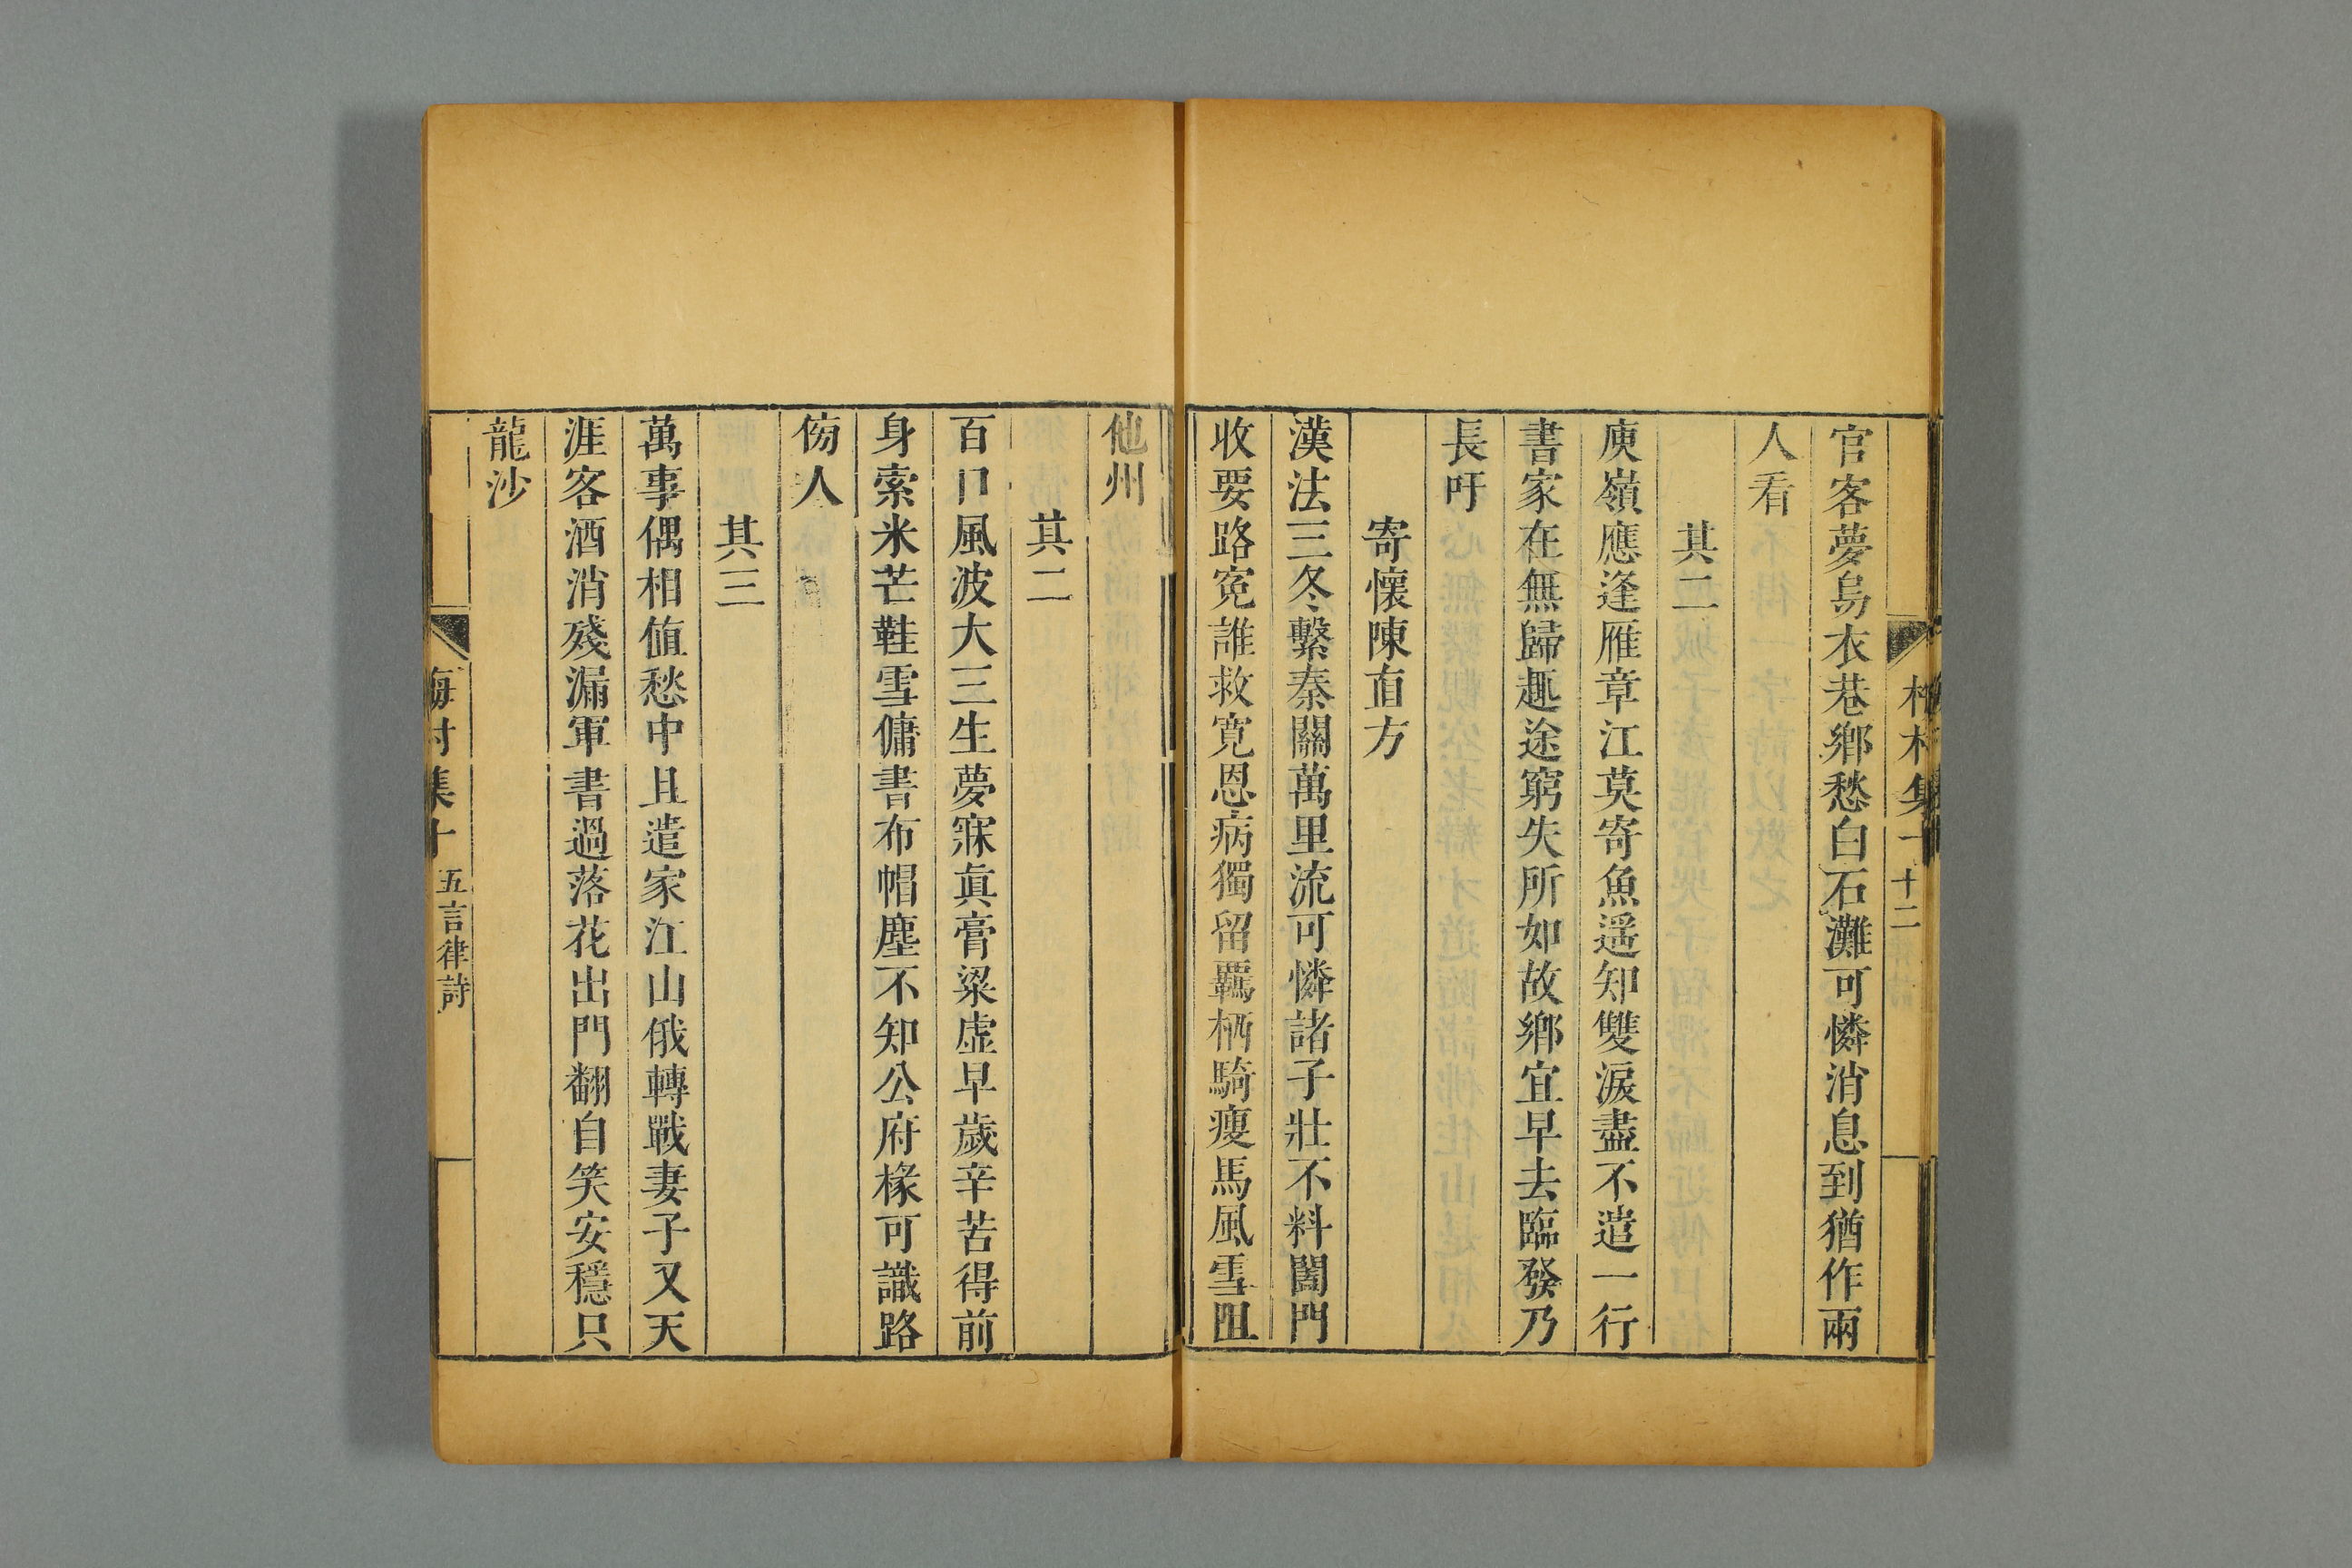 官客夢烏衣巷鄉愁白石灘可憐消息到猶作兩
人看
其二
庾嶺應逢雁章江莫寄魚遥知雙淚盡不遣一行
書家在無歸趣途窮失所如故鄉宜早去臨發乃
長吁
寄懷陳直方
漢法三冬繫秦關萬里流可憐諸子壯不料闔門
收要路寃誰救寛恩病獨留羈栖騎瘦馬風雪阻
他州
其二
百口風波大三生夢寐眞膏粱虛早歲辛苦得前
身索米芒鞋雪傭書布帽塵不知公府椽可識路
傍人
其三
萬事偶相值愁中且遣家江山俄轉戰妻子又天
涯客酒消殘漏軍書過落花出門翻自笑安穩只
龍沙
十二
梅村集十 五言律詩